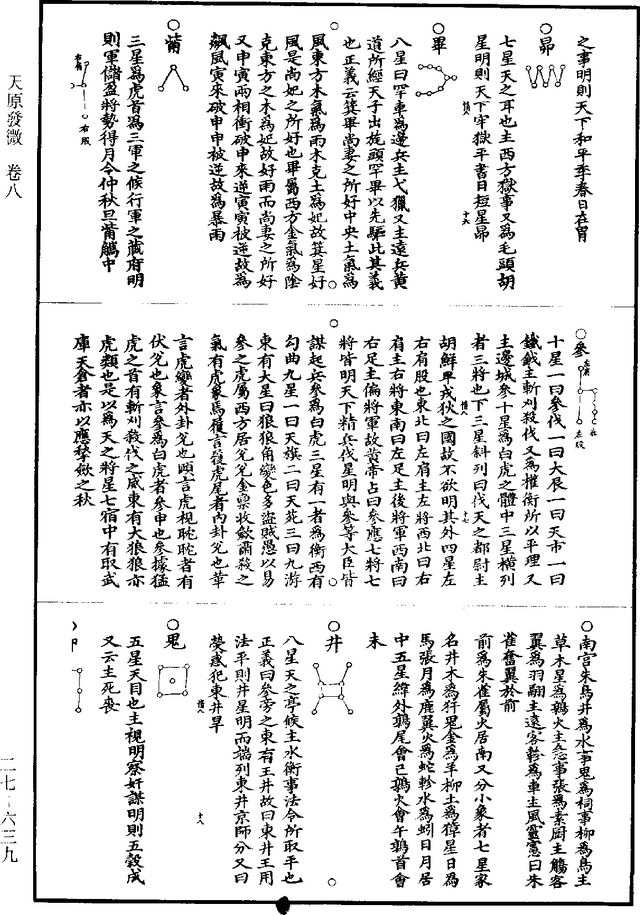 之事明則天下和平季春日在胃
○昴
七星天之耳也主西方獄事又為毛頭胡
星明則天下牢獄平書日短星昴
○畢
八星曰罕車為邊兵主弋獵又主遠兵黄
道所經天子出旄頭罕畢以先驅此其義
也正義云箕畢尚妻之所好中央土氣為
風東方木氣為雨木克土為妃故箕星好
風是尚妃之所好也畢屬西方金氣為陰
克東方之木為妃故好雨而尚妻之所好
又申寅兩相衝破申來逆寅寅被逆故為
飆風寅來破申申被逆故為暴雨
○觜
三星為虎首為三軍之候行軍之藏府明
則軍儲盈將勢得月令仲秋旦觜觿中
右肩
右股
○參
左肩
左股
十星一曰參伐一曰大辰一曰天市一曰
鐵鉞主斬刈殺伐又為權衡所以平理又
主邊城參十星為白虎之體中三星橫列
者三將也下三星斜列曰伐天之都尉主
胡鮮卑戎狄之國故不欲明其外四星左
右肩股也東北曰左肩主左將西北曰右
肩主右將東南曰左足主後將軍西南曰
右足主偏將軍故黄帝占曰參應七將七
將皆明天下精兵伐星明與參等大臣皆
謀起兵參為白虎三星有一者為衡西有
勾曲九星一曰天旗二曰天苑三曰九游
東有大星曰狼狼角變色多盜賊愚以易
參之虎屬西方居兊兊金禀收斂肅殺之
氣有虎象焉履言履虎尾者内卦兊也革
言虎變者外卦兊也頤言虎視眈眈者有
伏兊也象言參為白虎者參申也參據猛
虎之首有斬刈殺伐之威東有大狼狼亦
虎類也是以為天之將星七宿中有取武
庫天倉者亦以應揫斂之秋
○南宫朱鳥井為水事鬼為祠事柳為鳥主
草木星為鶉火主急事張為素厨主觴客
翼為羽翮主遠客軫為車主風靈憲曰朱
雀奮翼於前
前為朱雀屬火居南又分小象者七星家
名井木為犴鬼金為羊柳土為獐星日為
馬張月為鹿翼火為蛇軫水為蚓日月居
中五星緯外鶉尾會巳鶉火會午鶉首會
未
○井
八星天之亭候主水衡事法令所取平也
正義曰參旁之東有玉井故曰東井王用
法平則井星明而端列東井京師分又曰
熒惑犯東井旱
○鬼
五星天目也主視明察奸謀明則五穀成
又云主死喪
天原發微 卷八
二七-六三九